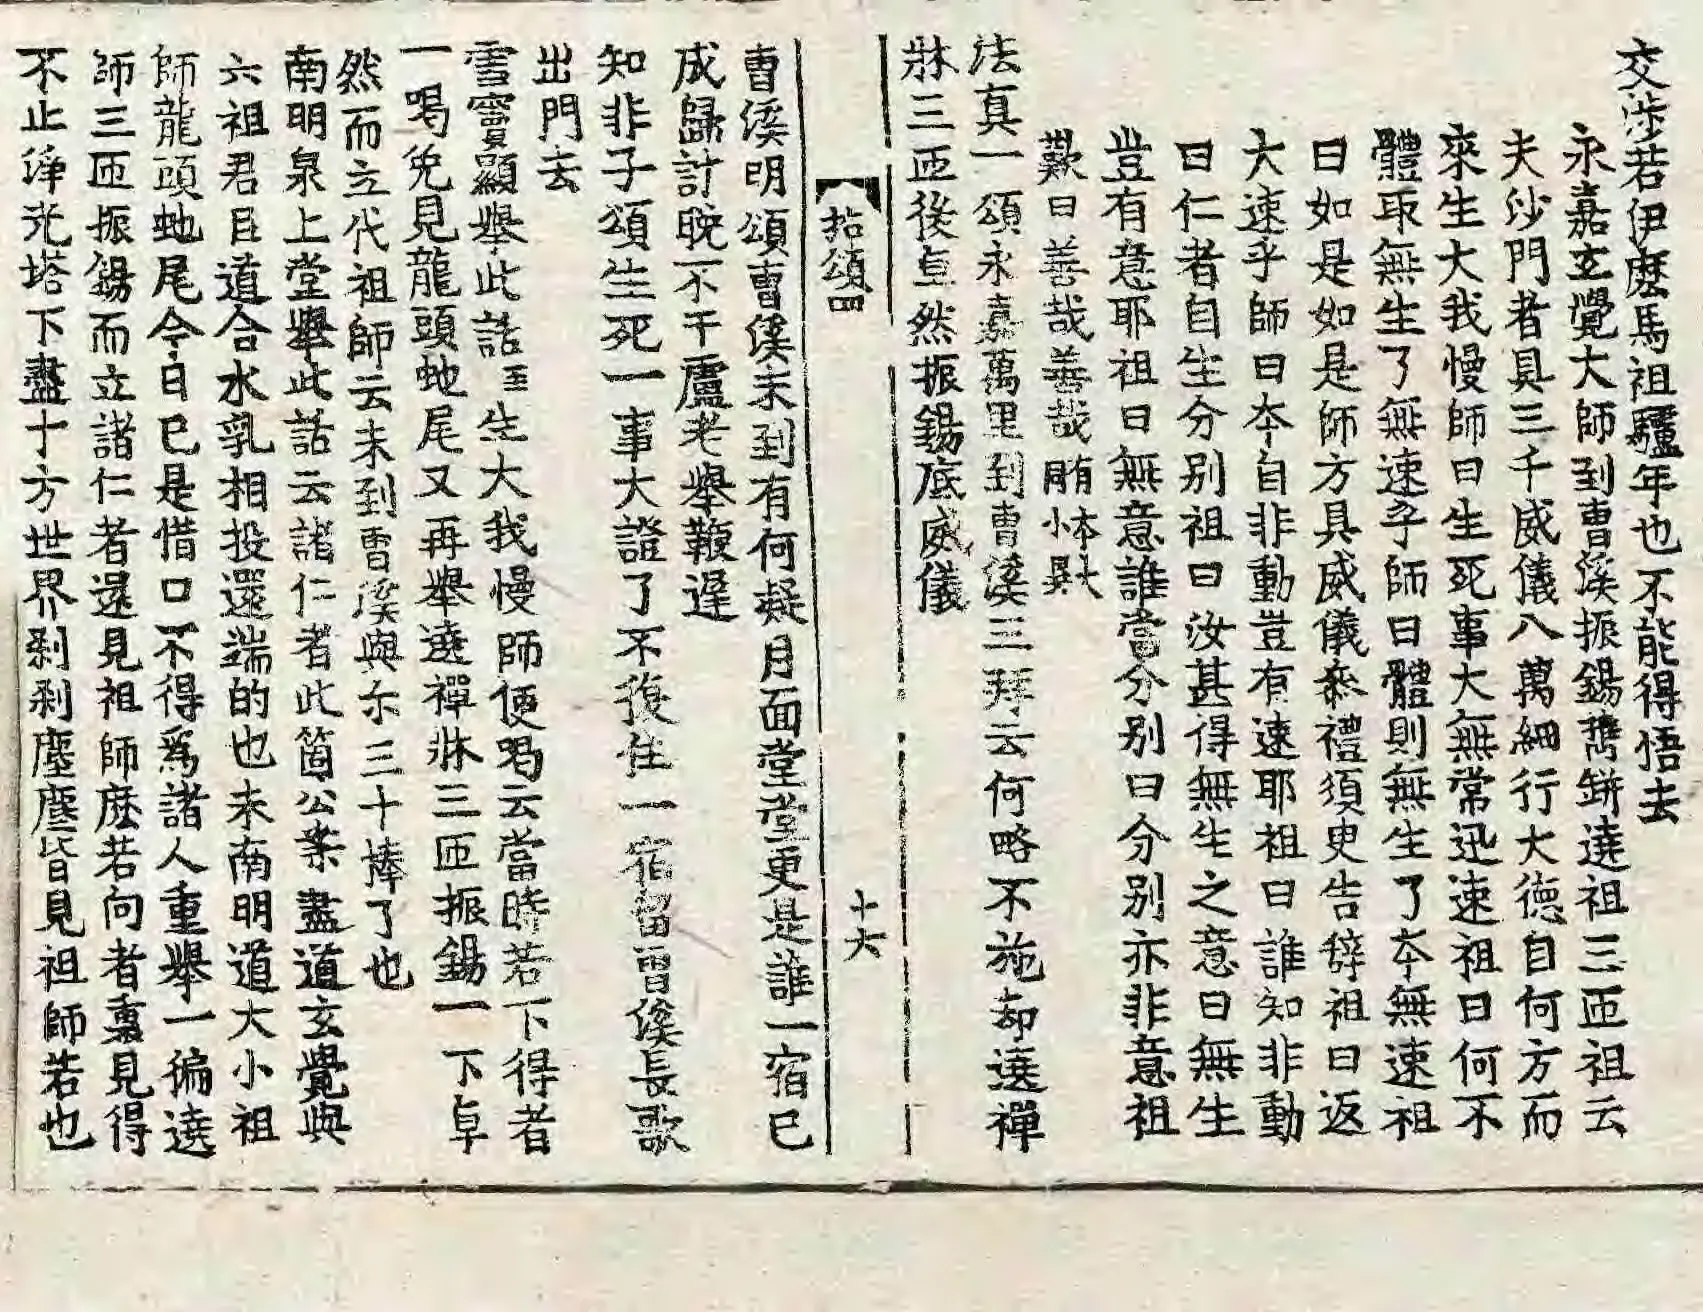 交涉若伊麽馬祖驢年也不能得悟去
永嘉玄覺大師到曺溪振錫𢹂缾遶祖三匝祖云
夫沙門者具三千威儀八萬細行大德自何方而
來生大我慢師曰生死事大無常迅速祖曰何不
體取無生了無速乎師曰體則無生了夲無速祖
曰如是如是師方具威儀叅禮須臾告辝祖曰返
大速乎師曰夲自非動豈有速耶祖曰誰知非動
曰仁者自生分別祖曰汝甚得無生之意曰無生
豈有意耶祖曰無意誰當分別曰分別亦非意祖
歎曰善哉善哉有本大同小異
法真一頌永嘉萬里到曺溪三拜云何略不施却遶禪
牀三匝後卓然振錫底威儀
拈頌四
十六
曺溪明頌曺溪未到有何疑月面堂堂更是誰一宿已
成歸計晚不干盧老擧鞭遲
知非子頌生死一事大證了不復住一宿留曺溪長歌
出門去
雪竇顯擧此話至生大我慢師便喝云當時若下得者
一喝免見龍頭虵尾又再擧遶禪牀三匝振錫一下卓
然而立代祖師云未到曺溪與尒三十捧了也
南明泉上堂擧此話云諸仁者此箇公案盡道玄覺與
六祖君臣道合水乳相投還端的也未南明道大小祖
師龍頭虵尾今日已是惜口不得爲諸人重擧一徧遶
師三匝振錫而立諸仁者還見祖師麽若向者裏見得
不止淨光塔下盡十方世界刹刹塵塵皆見祖師若也